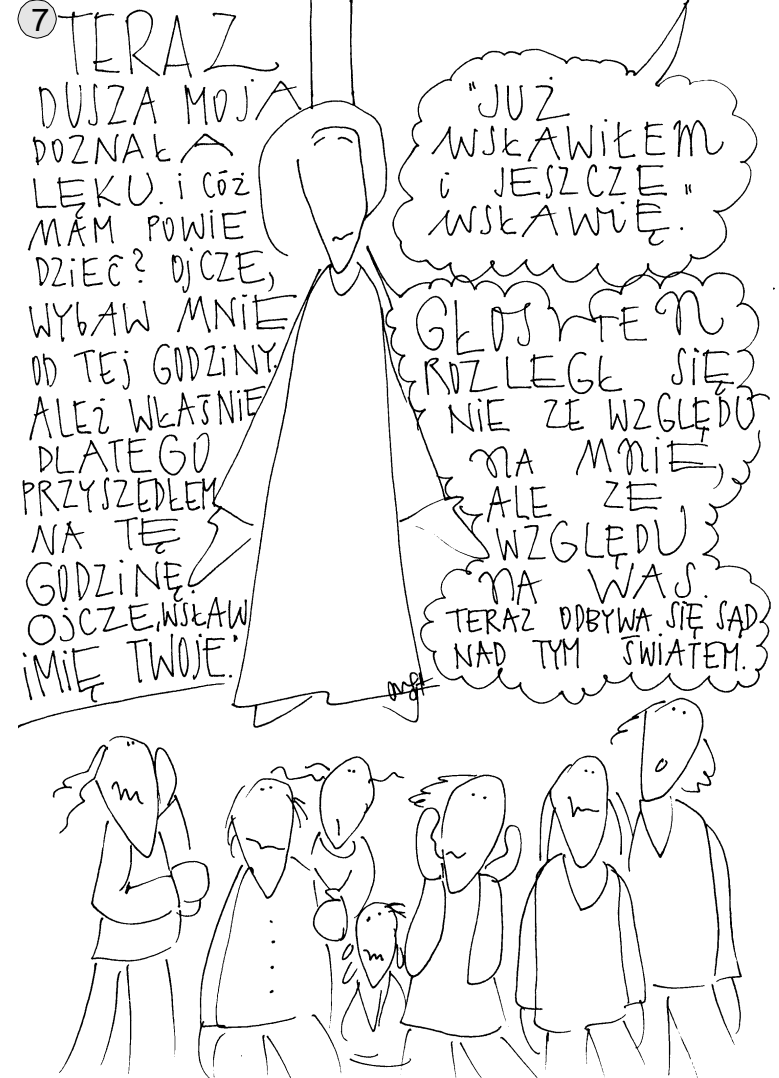 7
TERAZ
DUSZA MOJA
DOZNAŁA
LĘKU. i CÓŻ
MAM POWIE
DZIEĆ? OjCZE,
WYbAW MNIE
OD TEj GODZiNY.
ALEż WŁAŚNIE
DLATEGO
PRZYSZEDŁEM
NA TĘ
GODZiNĘ.
OjCZE, WSŁAW
iMIĘ TWOJE."
"JUŻ
WSŁAWIŁEM
i JESZCZE
WSŁAWIĘ."
GŁOS TEN
ROZLEGŁ SIĘ
NIE ZE WZGLĘDU
NA MNIE,
ALE ZE
WZGLĘDU
NA WAS.
TERAZ ODBYWA SIĘ SĄD
NAD TYM ŚWIATEM.